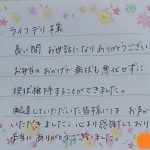 ライフデリ様
長い間 お世話になりありがとうございました。
お弁当のおかげで病状も悪化せずに
現状維持することができました。
配達していただいた皆様には お声がけ
いただきました。心より感謝しております。
本当に ありがとうございました。